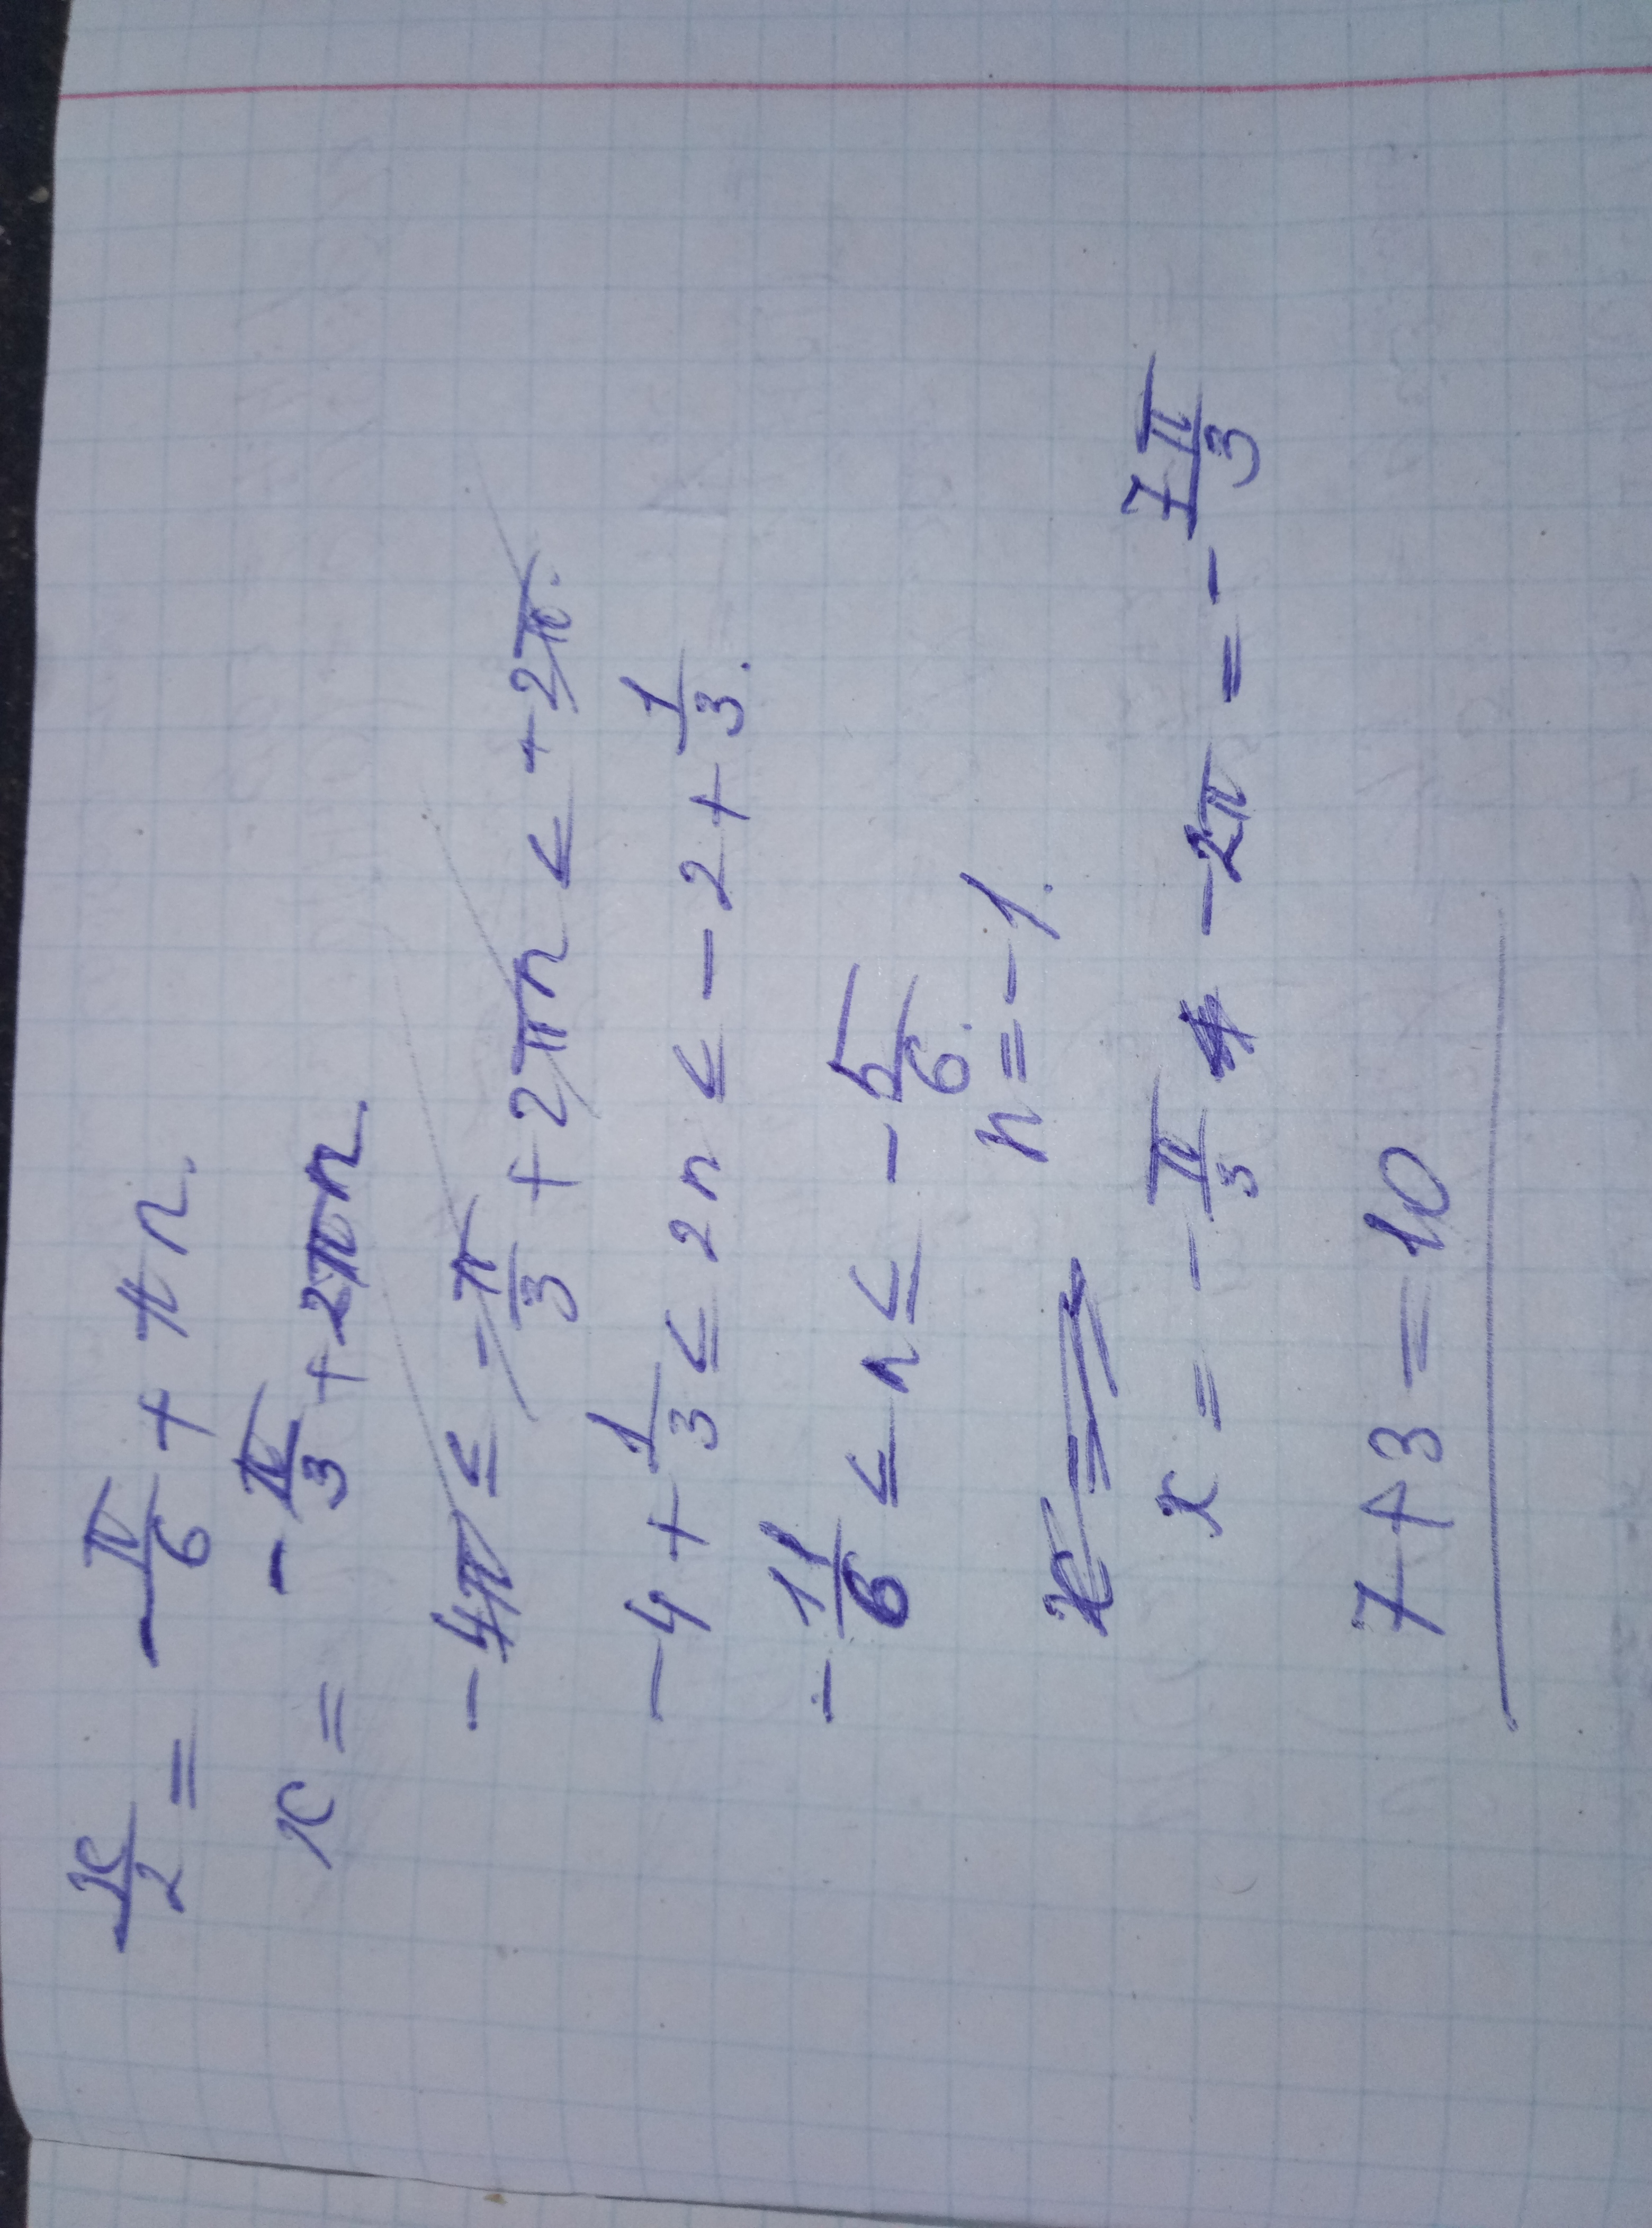 x/2 = -π/6 + πn.
x = -π/3 + 2πn
-4π ≤ -π/3 + 2πn < +2π.
-4 + 1/3 ≤ 2n < -2 + 1/3.
-11/6 ≤ n ≤ -5/6.
n = -1.
x = -π/3 -2π = -7π/3
7+3=10